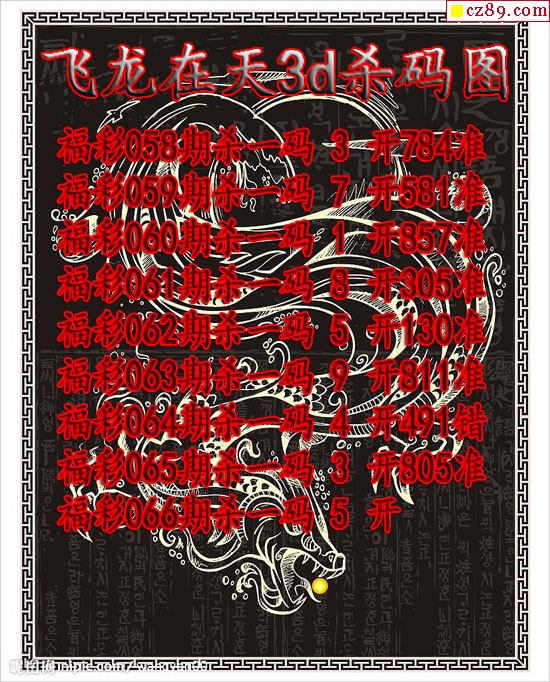 cz89.com
飞龙在天3d杀码图
福彩058期杀一码 3 开784准
福彩059期杀一码 7 开581准
福彩060期杀一码 1 开857准
福彩061期杀一码 8 开305准
福彩062期杀一码 5 开130准
福彩063期杀一码 9 开811准
福彩064期杀一码 4 开491错
福彩065期杀一码 3 开805准
福彩066期杀一码 5 开